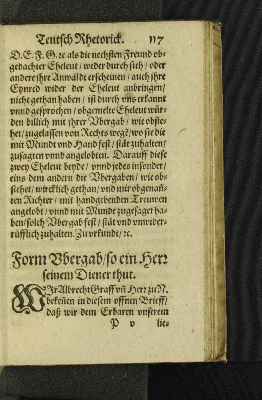 Teutsch Rhetorick. 117
D. E. F. G. ꝛc als die nechsten Freund ob-
gedachter Eheleut / weder durch sich / oder
andere jhre Anwäldt erscheinen / auch jhre
Eynred wider der Eheleut anbringen /
nicht gethan haben / ist durch vns erkannt
vnnd gesprochen / obgemelte Eheleut wür-
den billich mit jhrer Vbergab / wie obste-
het / zugelassen von Rechts wegẽ / wo sie die
mit Mund vnd Hand fest / stät zuhalten /
zusagten vnnd angelobten. Darauff diese
zwey Eheleut beyde / vnnd jedes insonder /
eins dem andern die Vbergaben / wie ob-
stehet / wircklich gethan / vnd mir obgenañ-
ten Richter / mit handgebenden Treuwen
angelobt / vnnd mit Munde zugesaget ha-
ben / solch Vbergab fest / stät vnd vnwider-
rüfflich zuhalten. Zu vrkundt / ꝛc.
Form Vbergab / so ein Herr
seinem Diener thut.
WIr Albrecht Graff vñ Herr zu N.
bekeñen in diesem offnen Brieff /
daß wir dem Erbaren vnserem
P v lie-